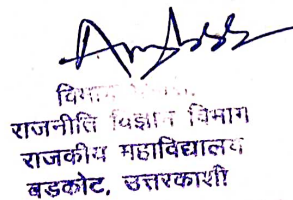 विभाग
राजनीति विज्ञान विभाग
राजकीय महाविद्यालय
बड़कोट, उत्तरकाशी